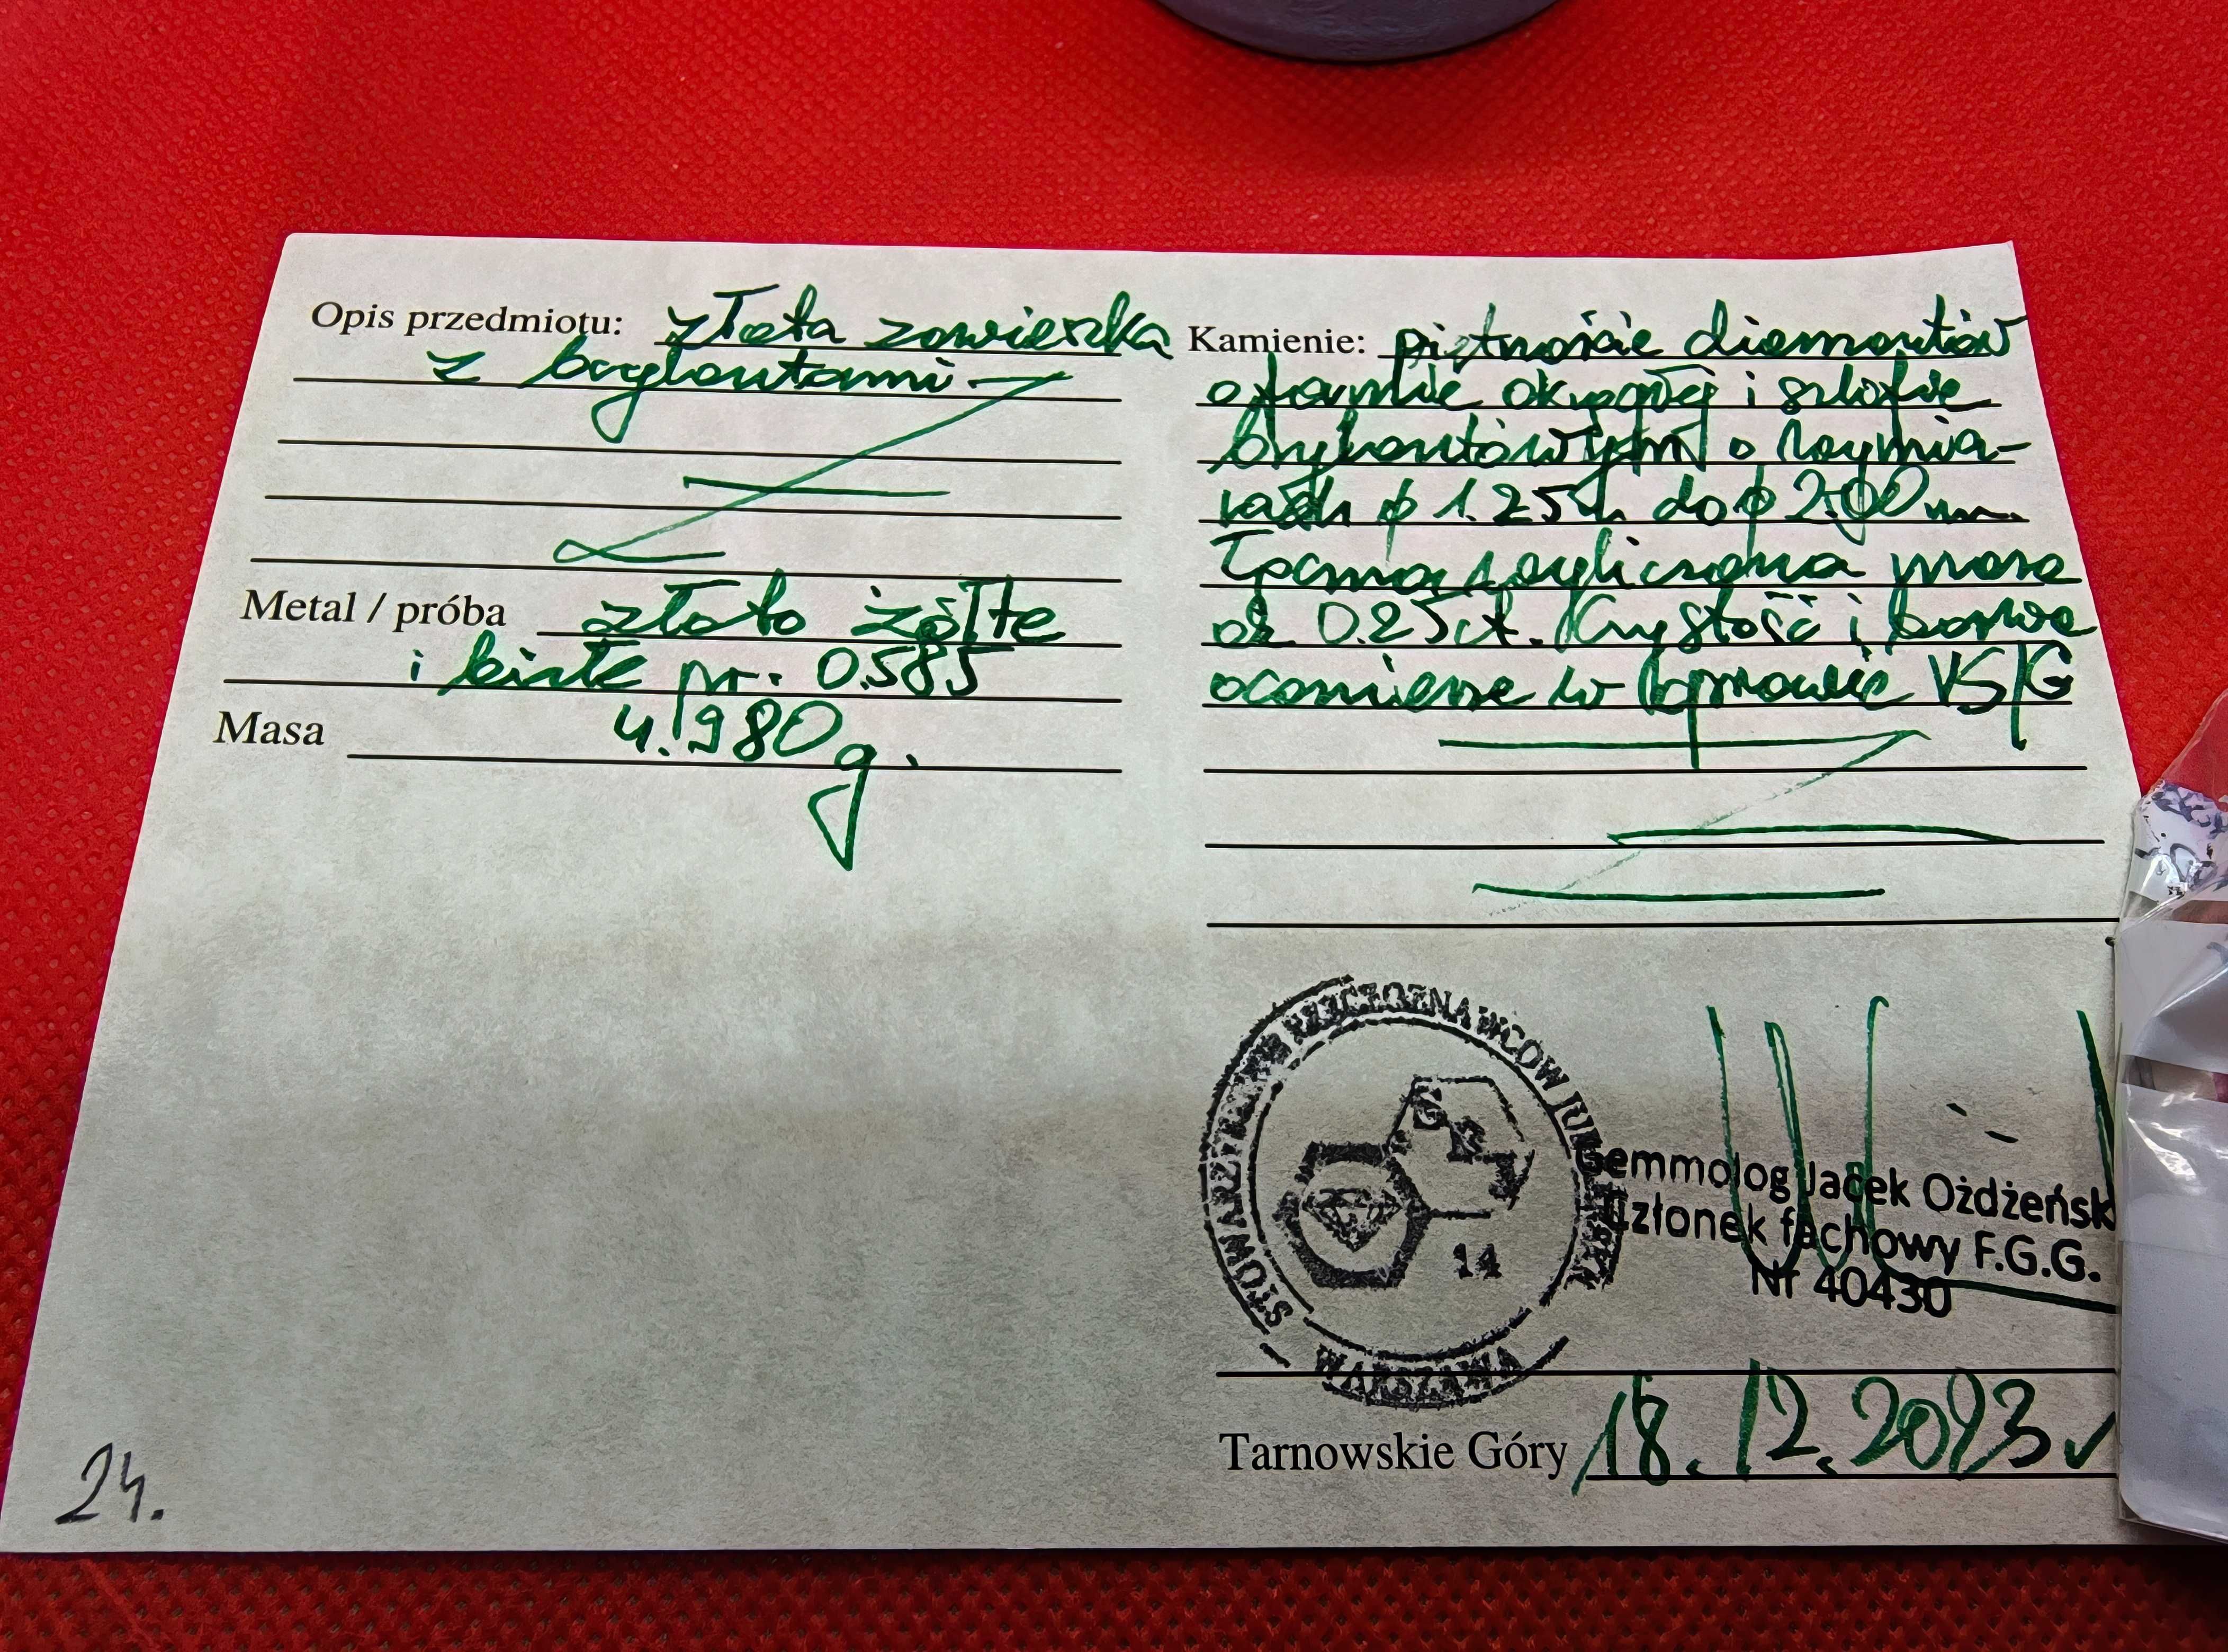 Opis przedmiotu: złota zawieszka
z brylantami
Metal / próba złoto żółte
i białe pr. 0.585
Masa 4.980 g.
Kamienie: piętnaście diamentów
o formie okrągłej i szlifie
brylantowym o wymia-
rach ϕ 1.25 do ϕ 2.00 mm.
Łączna wyliczona masa
ok. 0.25 ct. Czystość i barwa
oceniene w oprawie VS/G
STOWARZYSZENIE RZECZOZNAWCÓW JUBILERSKICH
WARSZAWA
14
Gemmolog Jacek Ożdżeńsk
Członek fachowy F.G.G.
Nr 40430
Tarnowskie Góry 18.12.2013
24.